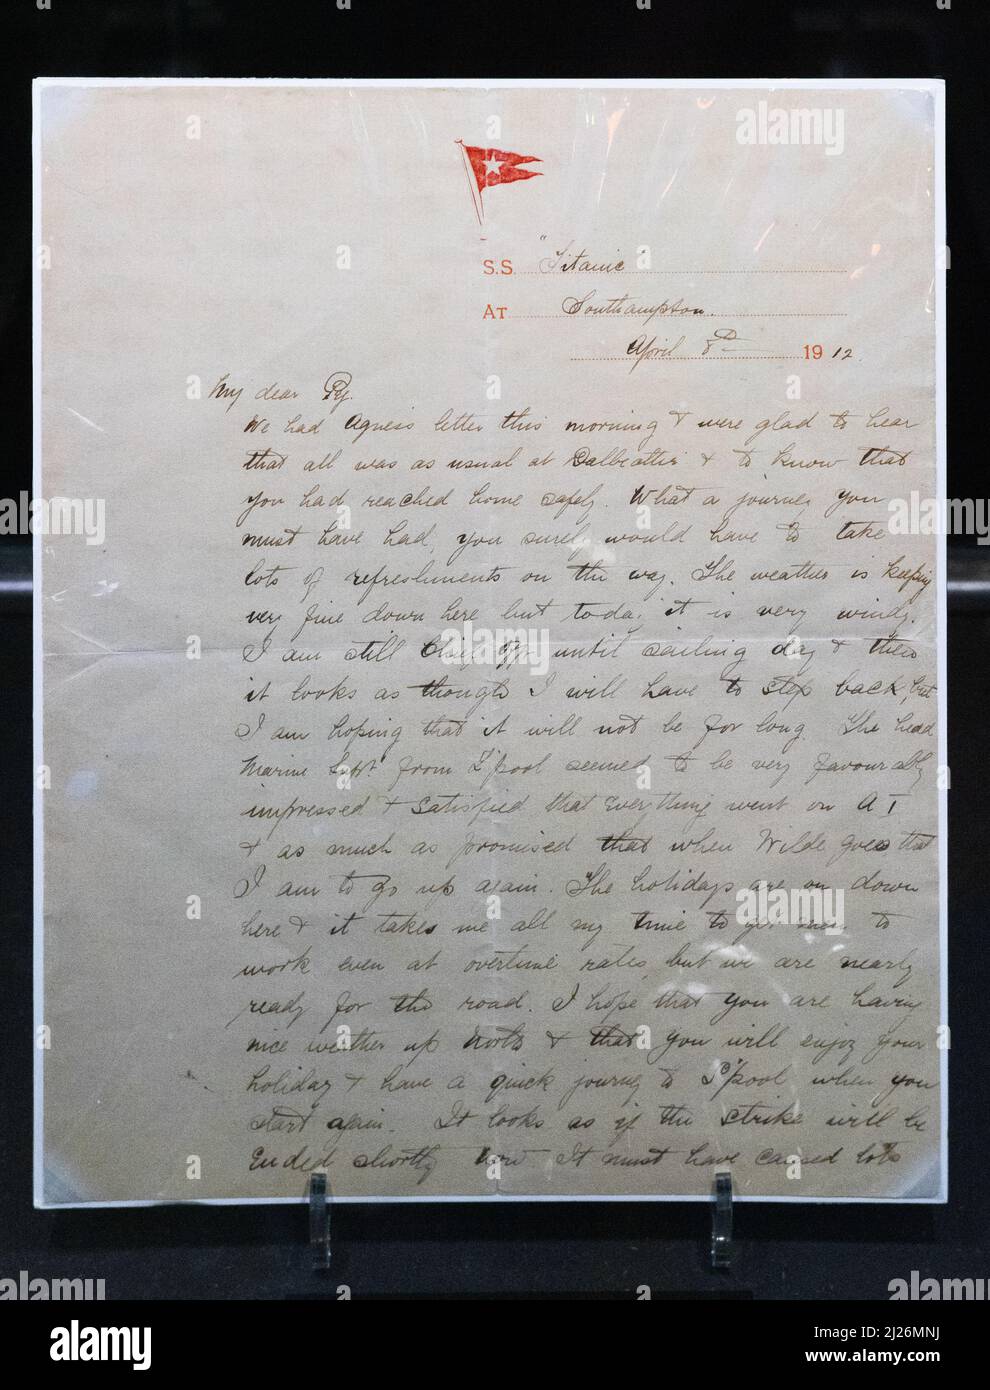 S.S. "Titanic"
AT Southampton.
April 8th 1912.
My dear Peg.
We had Agness letter this morning & were glad to hear
that all was as usual at Dalbeattie & to know that
you had reached home safely. What a journey you
must have had, you surely would have to take
lots of refreshments on the way. The weather is keeping
very fine down here but today it is very windy.
I am still Chief Offr until sailing day & then
it looks as though I will have to step back, but
I am hoping that it will not be for long. The head
Marine Supt from L'pool seemed to be very favourably
impressed & satisfied that everything went on A1
& as much as promised that when Wilde goes that
I am to go up again. The holidays are on down
here & it takes me all my time to get men to
work even at overtime rates, but we are nearly
ready for the road. I hope that you are having
nice weather up North & that you will enjoy your
holiday & have a quick journey to L'pool when you
start again. It looks as if the strike will be
Ended shortly now It must have caused lots
alamy
a
2J26MNJ
www.alamy.com